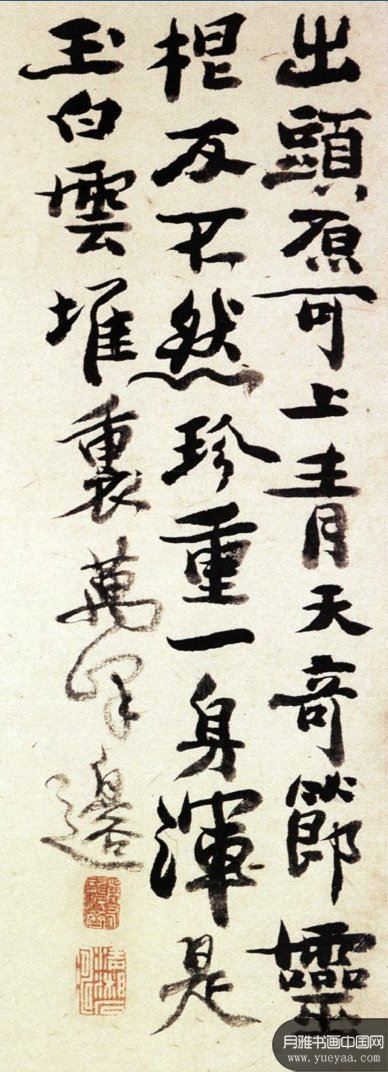 出頭原可上青天奇節靈
根反不然珍重一身渾是
玉白雲堆裏萬峰邊
月雅书画中国网
www.yueyaa.com